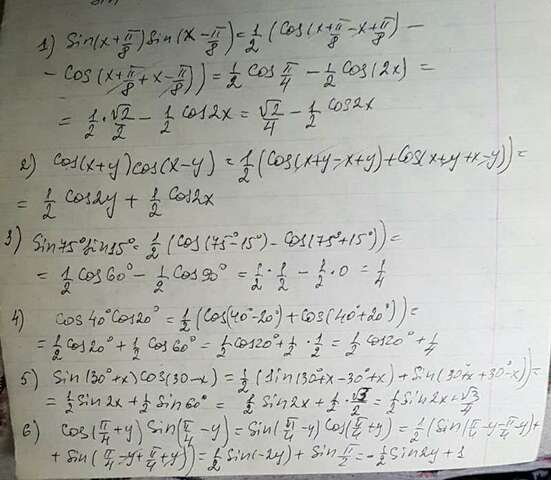 1) Sin(x+π/8)Sin(x-π/8)=1/2(Cos(x+π/8-x+π/8)-
-Cos(x+π/8+x-π/8))=1/2Cosπ/4-1/2Cos(2x)=
=1/2·√2/2-1/2Cos2x=√2/4-1/2Cos2x
2) Cos(x+y)Cos(x-y)=1/2(Cos(x+y-x+y)+Cos(x+y+x-y))=
=1/2Cos2y+1/2Cos2x
3) Sin75°Sin15°=1/2(Cos(75°-15°)-Cos(75°+15°))=
=1/2Cos60°-1/2Cos90°=1/2·1/2-1/2·0=1/4
4) Cos40°Cos20°=1/2(Cos(40°-20°)+Cos(40°+20°))=
=1/2Cos20°+1/2Cos60°=1/2Cos20°+1/2·1/2=1/2Cos20°+1/4
5) Sin(30°+x)Cos(30-x)=1/2(Sin(30°+x-30°+x)+Sin(30°+x+30°-x))=
=1/2Sin2x+1/2Sin60°=1/2Sin2x+1/2·√3/2=1/2Sin2x+√3/4
6) Cos(π/4+y)Sin(π/4-y)=Sin(π/4-y)Cos(π/4+y)=1/2(Sin(π/4-y-π/4-y)+
+Sin(π/4-y+π/4+y))=1/2Sin(-2y)+Sinπ/2=-1/2Sin2y+1